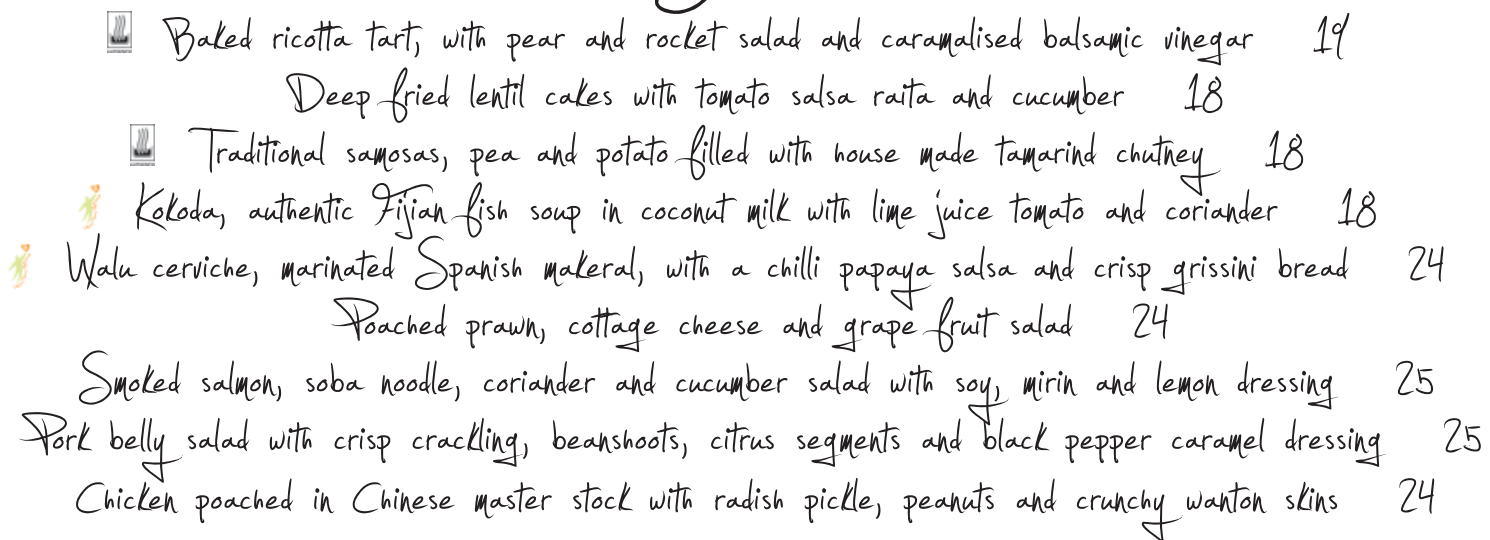 Baked ricotta tart, with pear and rocket salad and caramalised balsamic vinegar 19
Deep fried lentil cakes with tomato salsa raita and cucumber 18
Traditional samosas, pea and potato filled with house made tamarind chutney 18
Kokoda, authentic Fijian fish soup in coconut milk with lime juice tomato and coriander 18
Walu cerviche, marinated Spanish makeral, with a chilli papaya salsa and crisp grissini bread 24
Poached prawn, cottage cheese and grape fruit salad 24
Smoked salmon, soba noodle, coriander and cucumber salad with soy, mirin and lemon dressing 25
Pork belly salad with crisp crackling, beanshoots, citrus segments and black pepper caramel dressing 25
Chicken poached in Chinese master stock with radish pickle, peanuts and crunchy wanton skins 24